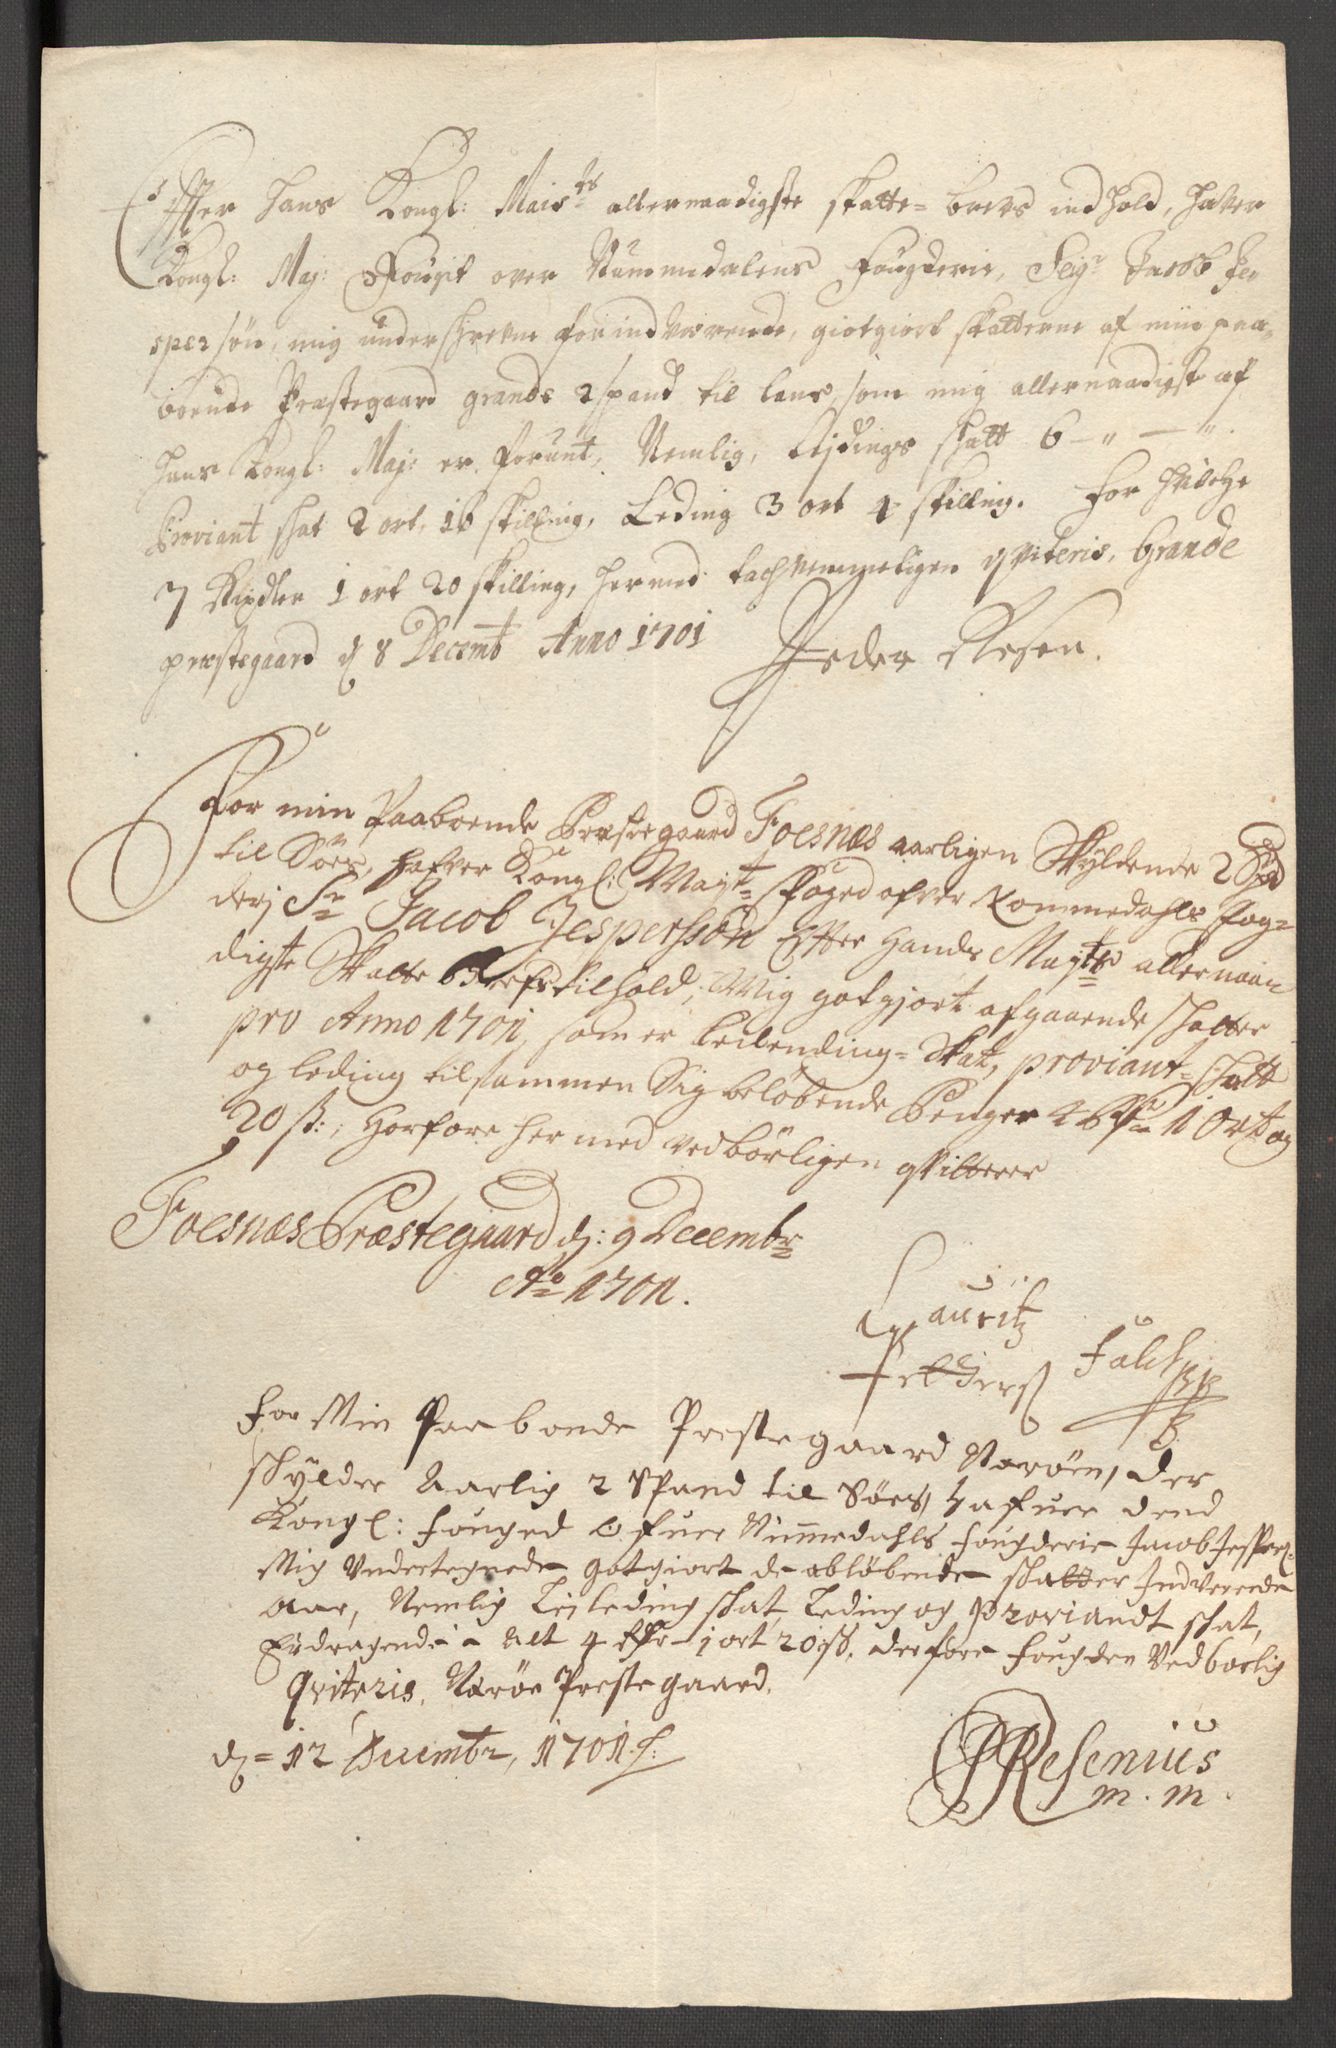 Effter Hans Kongl: Mais:ts allernaadigste skatte= brevs indhold, haver
Kongl: Maj: Fougit over Nummedalens Fougderie, Seigr Jacob Je
spersøn, mig underschrevne forindværende, giotgiort skatterne af min paa=
boende Præstegaard grande 2 spand til lans, som mig allernaadigst af
hans Kongl: Maj: er forunt, Nemlig, Lejdings skatt 6 – " – "
Proviant skat 2 ort, 16 skilling, Leding 3 ort 4 skilling. for hvilche
7 Rixdler 1 ort 20 skilling, hermed tachnemmeligen qviteris, Grande
præstegaard d 8 Decemb Anno 1701 Peder Resen.
For min Paaboende Præstegaard Foesnæs aarligen Skyldende 2 Spd
til Søes, hafver Kongl: Mayt= Foged ofver Nommedahls Fog=
derj Sr Jacob Jespersøn Efter Hands Mayts allernaa
digste Skatte Brefs tilhold, Mig gotgjort afgaaende skatter
pro Anno 1701, som er Leilending= Skat, proviant= skatt
og leding tilsammen Sig beløbende Penger 4 Rdr 1 Ort og
20 ß:, Horfore her med vedbørligen qvitterer
Foesnæs Præstegaard d: 9 Decembr
Ao 1701.
Lauritz
Pedders Falch
For Min Paaboende Prestegaard Nærøen, der
skylder Aarlig 2 Spand til Søes, hafuer dend
Kongl: fouged Ofuer Nummedahls fougderie Jacob Jespers:
Mig Undertegnede gotgiort de abløbende skatter Indverende
Aar, Nemlig Leilding skat, Leding og Proviandt skat,
Erdragende i alt 4 Rdr 1 ort 20 ß. derfore fougden Vedbørlig
Qviteris. Nærøe Prestegaard.
d= 12 Decembr, 1701.
PResenius
m. m.